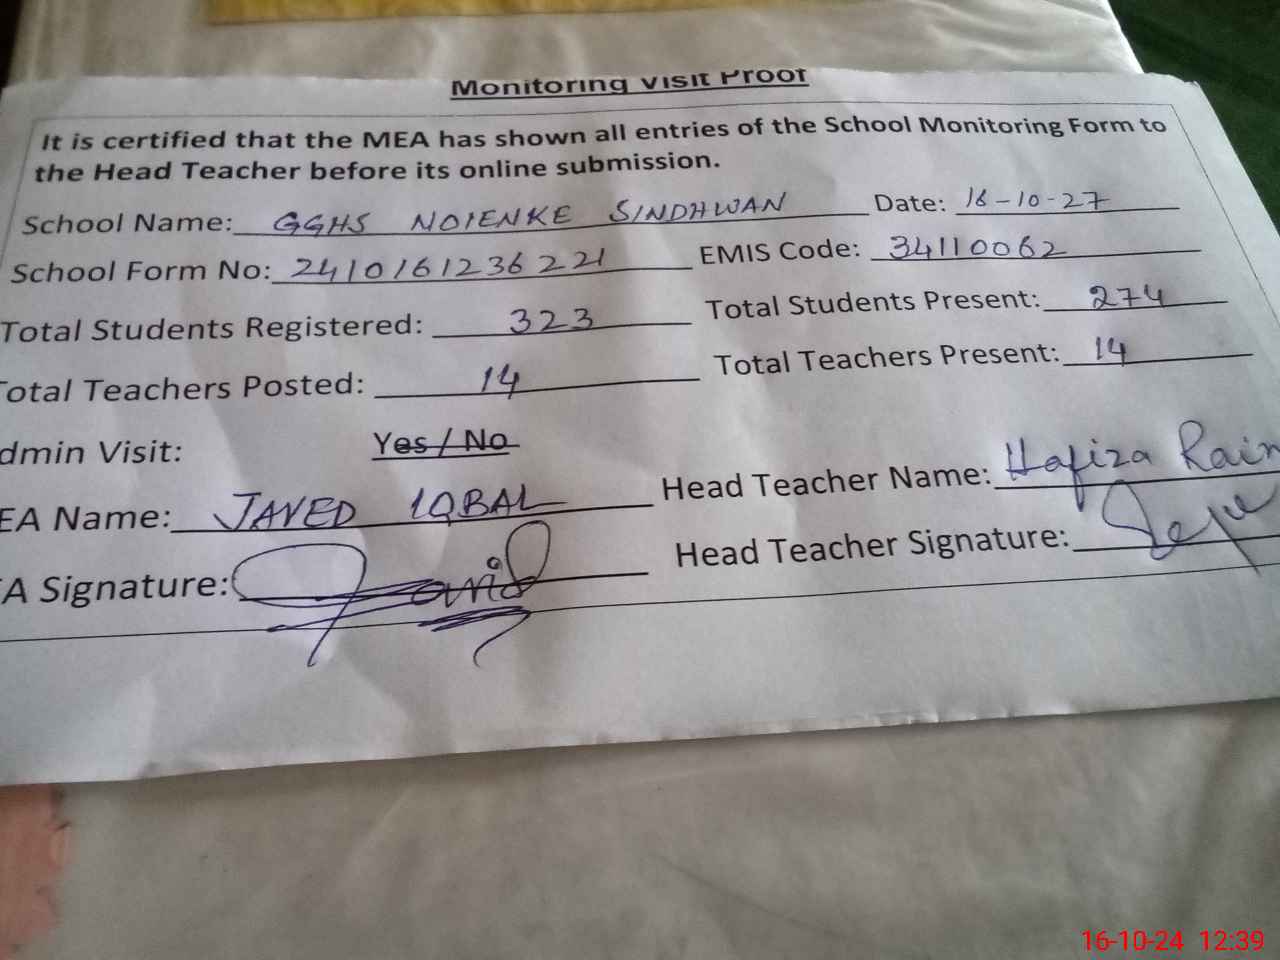 Monitoring Visit Proof
It is certified that the MEA has shown all entries of the School Monitoring Form to
the Head Teacher before its online submission.
School Name: GGHS NOIENKE SINDHWAN Date: 16-10-27
School Form No: 2410161236221 EMIS Code: 34110062
Total Students Registered: 323 Total Students Present: 274
Total Teachers Posted: 14 Total Teachers Present: 14
dmin Visit: Yes / No
EA Name: JAVED IQBAL Head Teacher Name: Hafiza Rain
A Signature: Javid Head Teacher Signature:
16-10-24 12:39